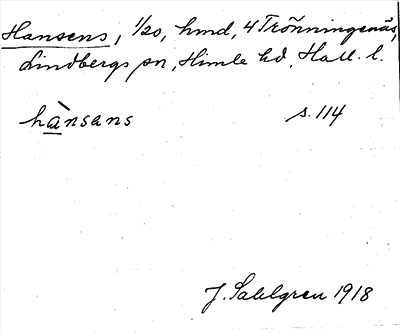 Hansens, 1/20, hmd, 4 Trönningenäs,
Lindbergs sn, Himle hd, Hall. l.
hànsans s. 114
J. Sahlgren 1918